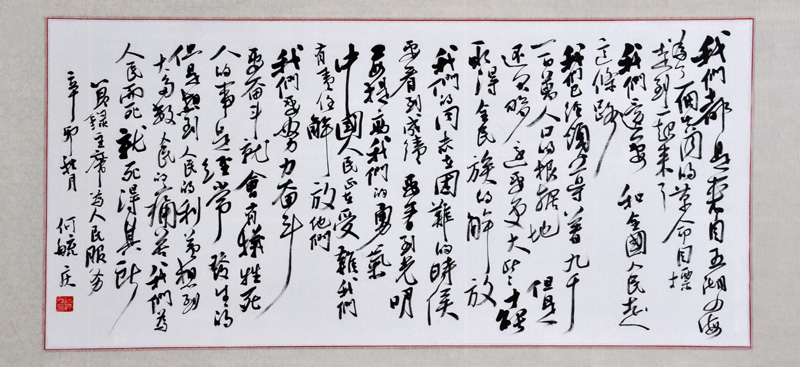 我們都是來自五湖四海
為了一個共同的革命目標
走到一起來了
我們還要和全國人民走
這條路
我們已經領導著九千
一百萬人口的根據地 但是
還不夠 還要更大些 才能
取得全民族的解放
我們的同志在困難的時候
要看到成績 要看到光明
要提高我們的勇氣
中國人民正在受難我們
有責任解放他們
我們要努力奋斗
要奋斗就會有犧牲死
人的事是經常發生的
但是想到人民的利益想到
大多數人民的痛苦我們為
人民而死就死得其所
毛主席為人民服务
辛卯秋月 何毓庆